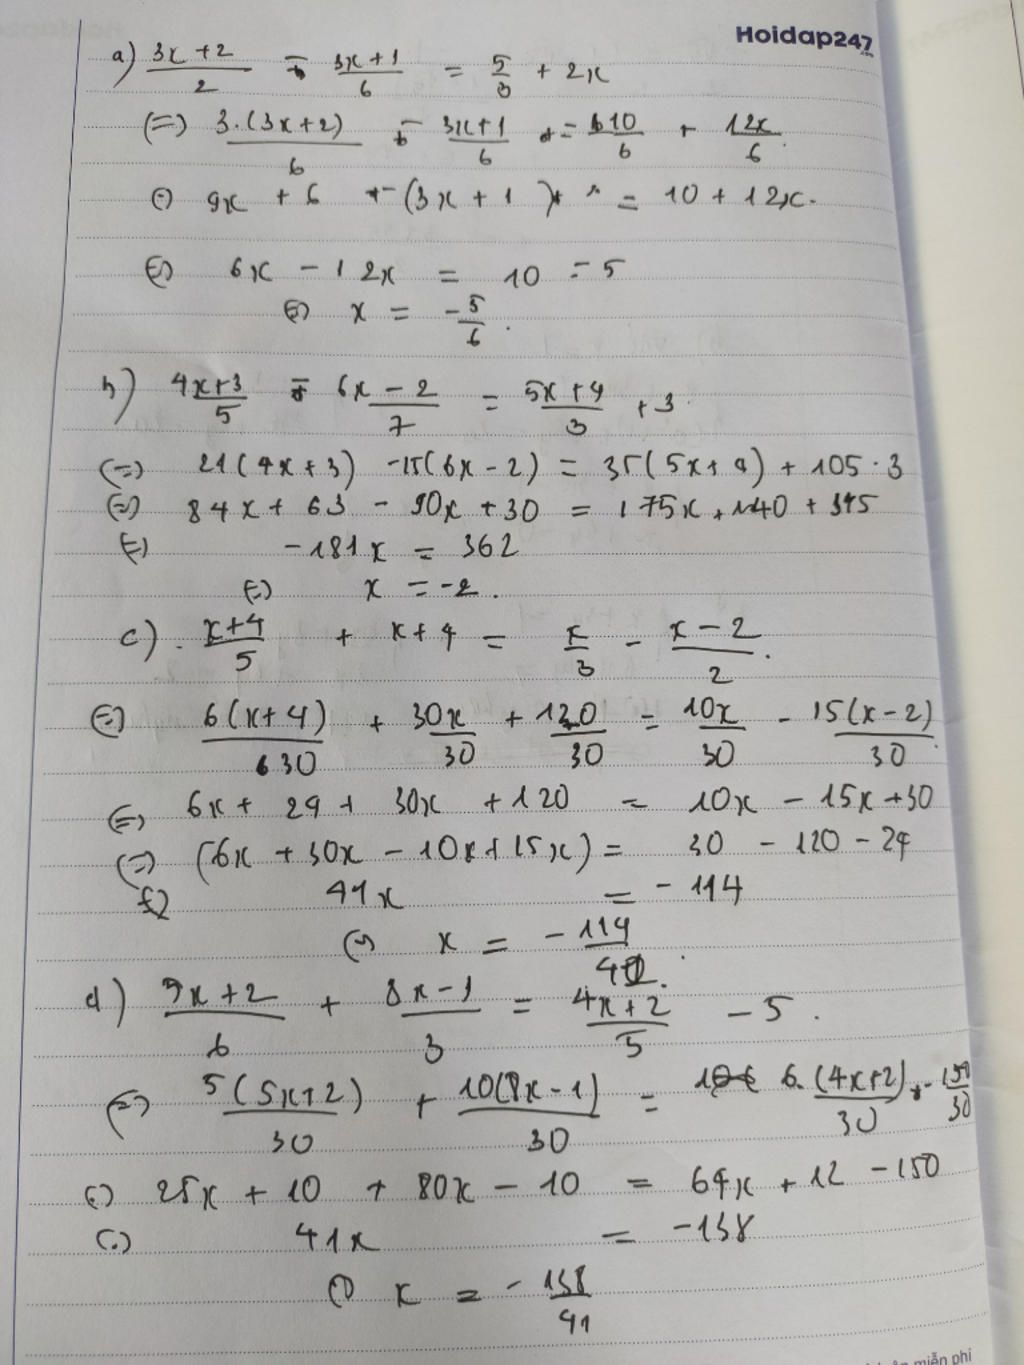 Hoidap247
.com
a) (3x+2)/2 - (3x+1)/6 = 5/3 + 2x
(=) 3.(3x+2)/6 - (3x+1)/6 = 10/6 + 12x/6
(=) 9x + 6 - (3x + 1) = 10 + 12x.
(=) 6x - 12x = 10 - 5
(=) x = -5/6.
b) (4x+3)/5 - (6x-2)/7 = (5x+4)/3 + 3
(=) 21(4x+3) - 15(6x-2) = 35(5x+4) + 105.3
(=) 84x + 63 - 90x + 30 = 175x + 140 + 315
(=) -181x = 362
(=) x = -2.
c) (x+4)/5 + x+4 = x/3 - (x-2)/2.
(=) 6(x+4)/30 + 30x/30 + 120/30 = 10x/30 - 15(x-2)/30
(=) 6x + 24 + 30x + 120 = 10x - 15x + 30
(=) (6x + 30x - 10x + 15x) = 30 - 120 - 24
(=) 41x = -114
(=) x = -114/41.
d) (5x+2)/6 + (8x-1)/3 = (4x+2)/5 - 5.
(=) 5(5x+2)/30 + 10(8x-1)/30 = 6.(4x+2)/30 - 150/30
(=) 25x + 10 + 80x - 10 = 64x + 12 - 150
(=) 41x = -138
(=) x = -138/41
miễn phí